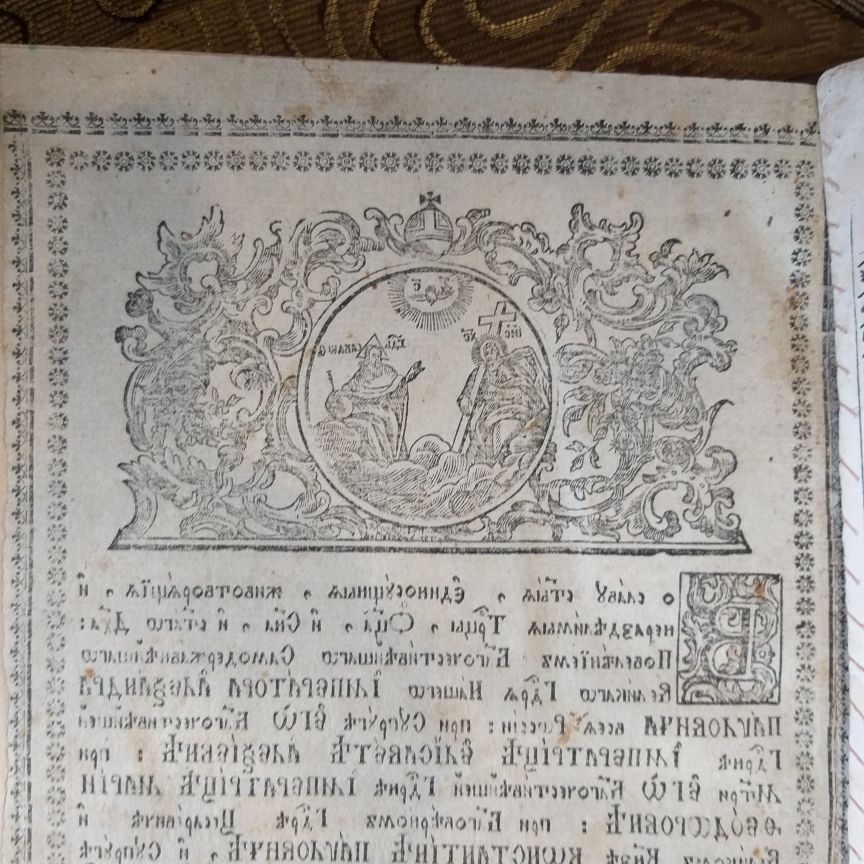 Во славꙋ ст҃ыѧ , є҆диносꙋщныѧ , животворѧщїѧ , и҆
нераздѣлимыѧ Трⷪ҇цы , Ѻ҆ц҃а , и҆ Сн҃а , и҆ ст҃агѡ Дх҃а :
Повелѣнїемъ Бл҃гочестивѣйшагѡ Самодержавнѣйшагѡ
Великагѡ Гдⷭ҇рѧ Нашегѡ І҆МПЕРАТОРА А҆ЛЕѮАНДРА
ПАѴЛОВИЧА всеѧ Рѡссїи : при Сꙋпрꙋгѣ Є҆ГѠ̀ Бл҃гочестивѣйшей
Гдⷭ҇рнѣ І҆МПЕРАТРІЦѢ Є҆ЛІСАВЕТѢ АЛЕѮІЕВНѢ : при
Мт҃ри Є҆ГѠ̀ Бл҃гочестивѣйшей Гдⷭ҇рнѣ І҆МПЕРАТРІЦѢ МАРІИ
ѲЕѠДѠРОВНѢ : при Бл҃говѣрномъ Гдⷭ҇рѣ Цесаревичѣ и҆
КѠНСТАНТІНѢ ПАѴЛОВИЧѢ , и҆ Сꙋпрꙋгѣ